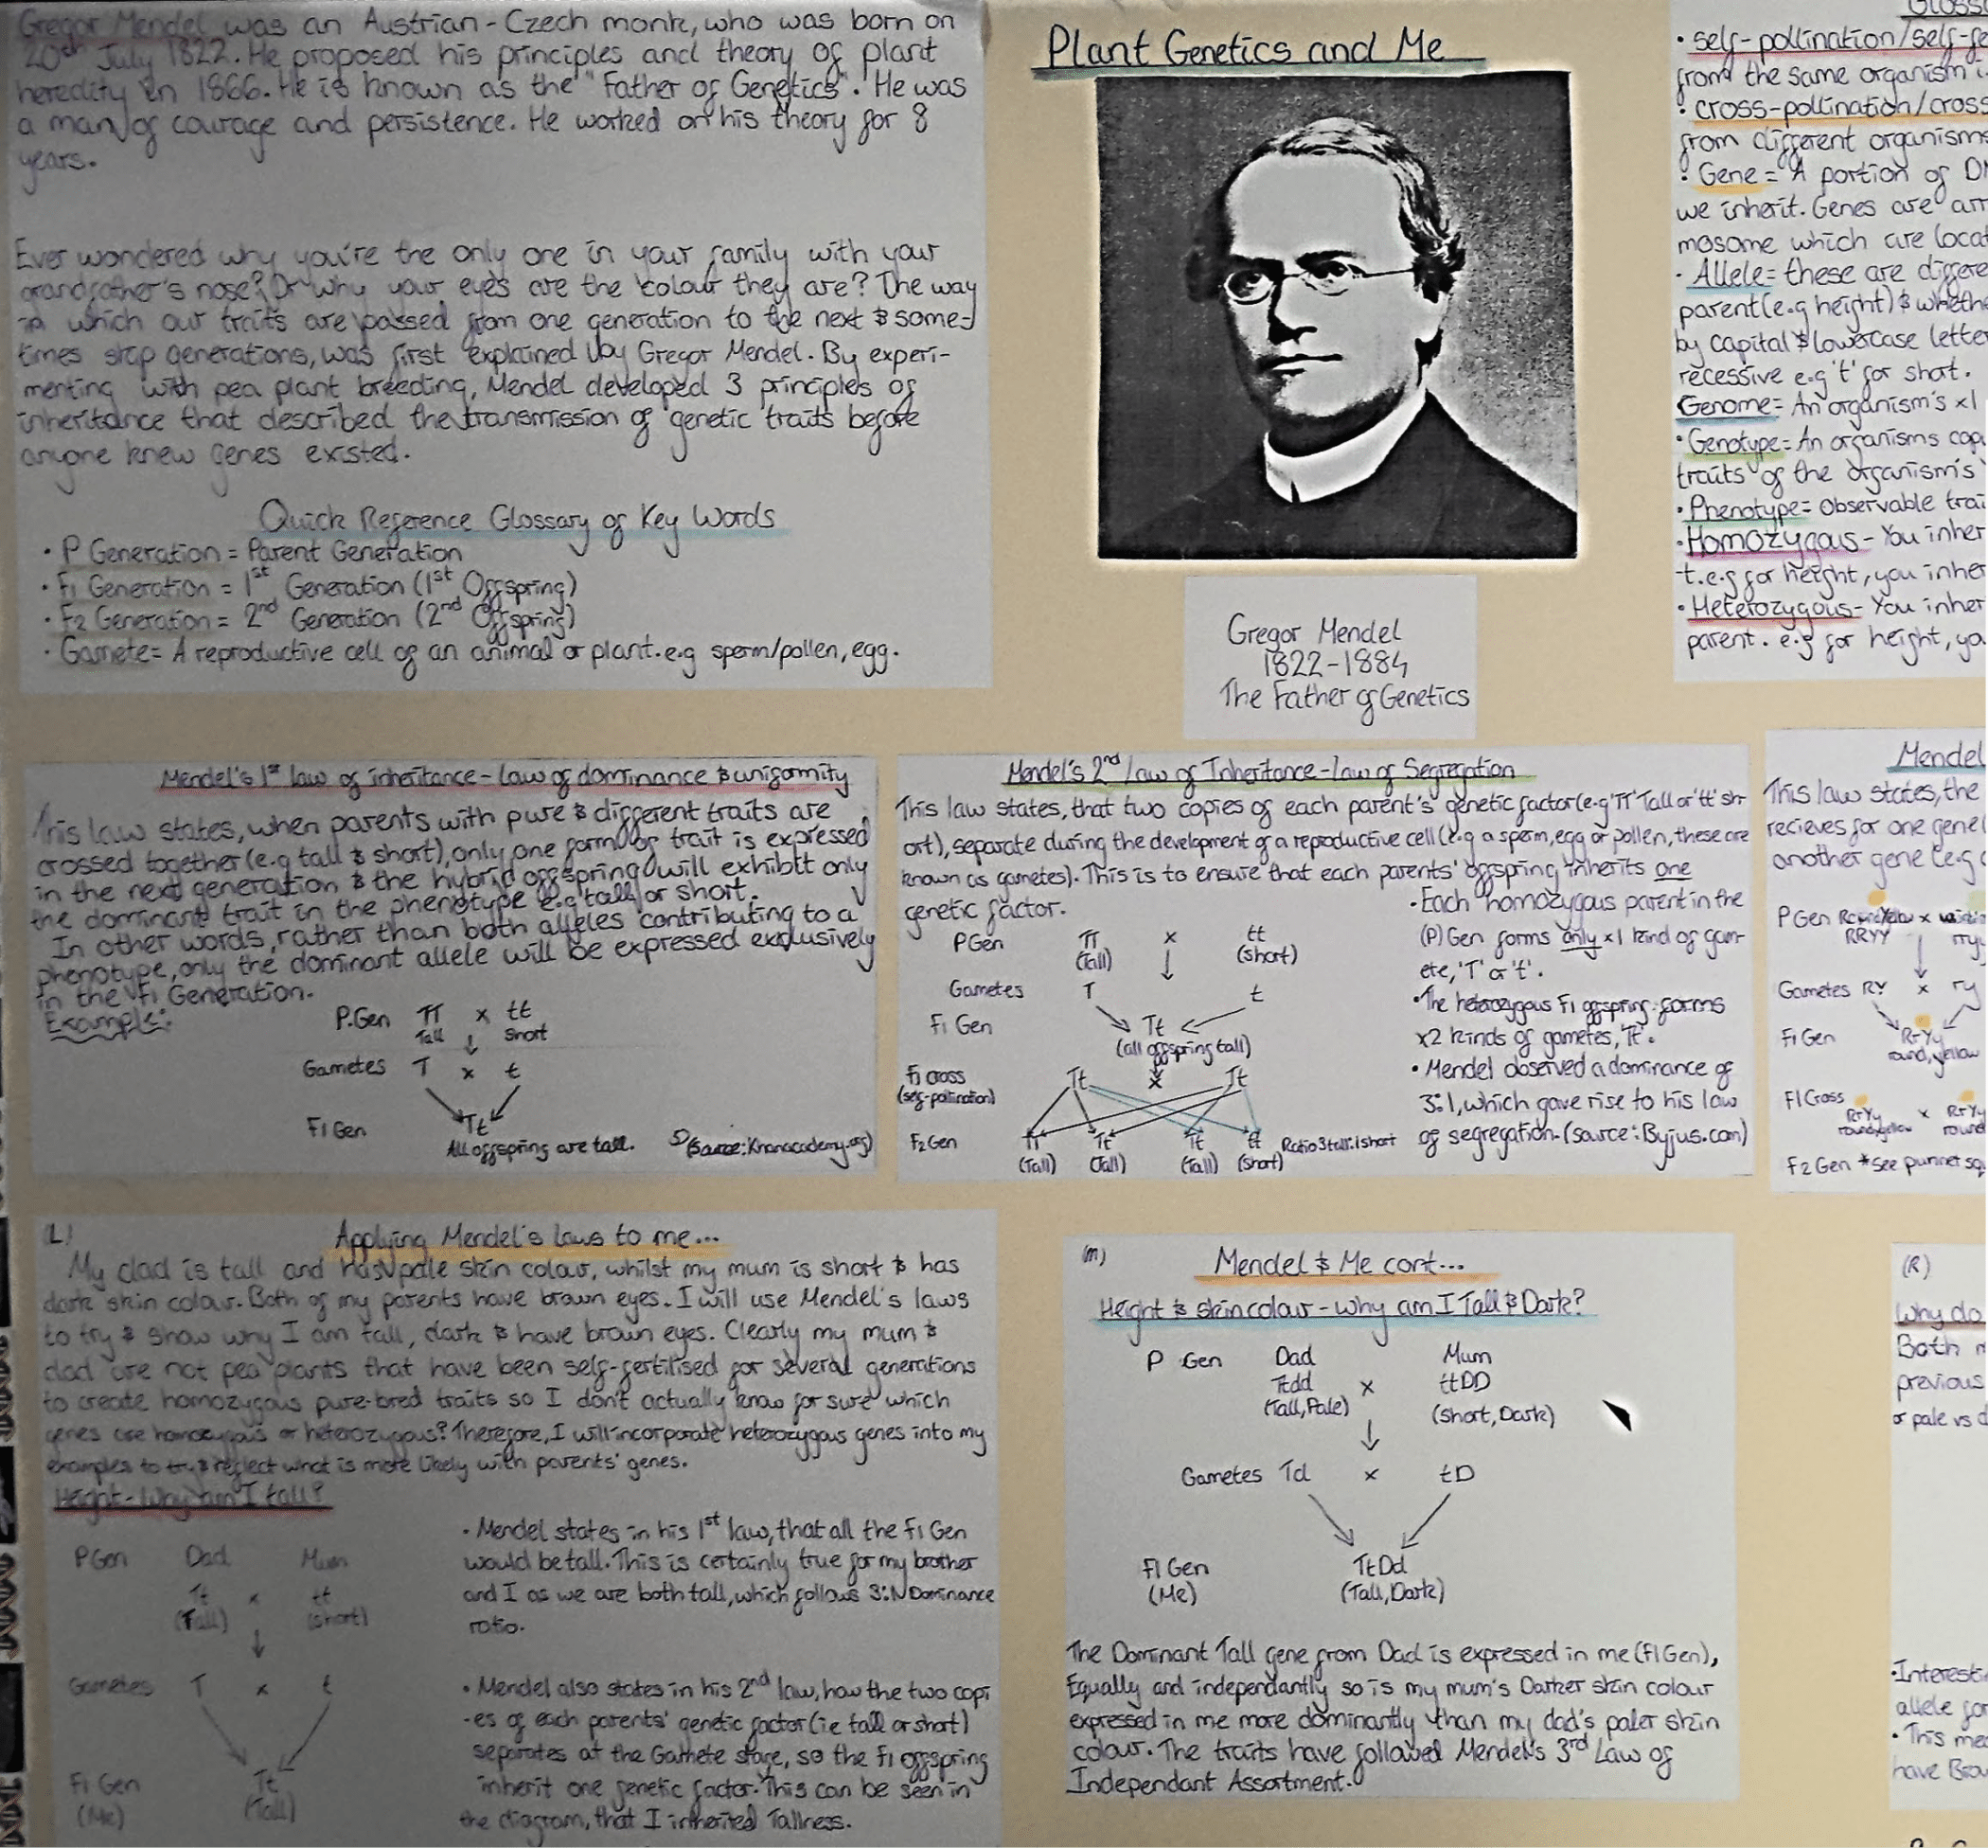 Gregor Mendel was an Austrian-Czech monk, who was born on
20th July 1822. He proposed his principles and theory of plant
heredity in 1866. He is known as the "Father of Genetics". He was
a man of courage and persistence. He worked on his theory for 8
years.
Ever wondered why you're the only one in your family with your
grandfather's nose? Or why your eyes are the colour they are? The way
in which our traits are passed from one generation to the next & some-
times skip generations, was first explained by Gregor Mendel. By experi-
menting with pea plant breeding, Mendel developed 3 principles of
inheritance that described the transmission of genetic traits before
anyone knew genes existed.
Quick Reference Glossary of Key Words
• P Generation = Parent Generation
• F1 Generation = 1st Generation (1st Offspring)
• F2 Generation = 2nd Generation (2nd Offspring)
• Gamete = A reproductive cell of an animal or plant. e.g sperm/pollen, egg.
Plant Genetics and Me
Gregor Mendel
1822-1884
The Father of Genetics
• self-pollination/self-fe
from the same organism i
• cross-pollination/cross
from different organisms
• Gene = A portion of DN
we inherit. Genes are arr
mosome which are locat
• Allele = these are differe
parent (e.g height) & wheth
by capital & lowercase letter
recessive e.g 't' for short.
Genome = An organism's x1
• Genotype = An organisms cop
traits of the organism's
• Phenotype = Observable trai
• Homozygous - You inher
t. e.g for height, you inher
• Heterozygous - You inher
parent. e.g for height, yo
Mendel's 1st law of inheritance - law of dominance & uniformity
This law states, when parents with pure & different traits are
crossed together (e.g tall & short), only one form of trait is expressed
in the next generation & the hybrid offspring will exhibit only
the dominant trait in the phenotype e.g tall or short.
In other words, rather than both alleles contributing to a
phenotype, only the dominant allele will be expressed exclusively
in the F1 Generation.
Example:
P.Gen TT x tt
Tall short
Gametes T x t
F1 Gen Tt
All offspring are tall. (Source: Khanacademy.org)
Mendel's 2nd law of Inheritance - law of Segregation
This law states, that two copies of each parent's genetic factor (e.g 'TT' Tall or 'tt' sh-
ort), separate during the development of a reproductive cell (e.g a sperm, egg or pollen, these are
known as gametes). This is to ensure that each parents' offspring inherits one
genetic factor.
P Gen TT x tt
(Tall) (short)
Gametes T t
F1 Gen Tt
(all offspring tall)
F1 cross Tt x Tt
(self-pollination)
F2 Gen TT Tt Tt tt Ratio 3 tall:1 short
(Tall) (Tall) (Tall) (short)
• Each homozygous parent in the
(P) Gen forms only x1 kind of gam-
ete, 'T' or 't'.
• The heterozygous F1 offspring forms
x2 kinds of gametes, 'Tt'.
• Mendel observed a dominance of
3:1, which gave rise to his law
of segregation. (source: Byjus.com)
Mendel
This law states, the
recieves for one gene
another gene (e.g
P Gen Round Yellow x
RRYY rry
Gametes RY x ry
F1 Gen RrYy
round, yellow
F1 Cross RrYy x RrYy
round yellow round
F2 Gen *See punnet sq
(L)
Applying Mendel's laws to me...
My dad is tall and has pale skin colour, whilst my mum is short & has
dark skin colour. Both of my parents have brown eyes. I will use Mendel's laws
to try & show why I am tall, dark & have brown eyes. Clearly my mum &
dad are not pea plants that have been self-fertilised for several generations
to create homozygous pure-bred traits so I don't actually know for sure which
genes are homozygous or heterozygous? Therefore, I will incorporate heterozygous genes into my
examples to try & reflect what is more likely with parents' genes.
Height - Why am I tall?
P Gen Dad Mum
Tt x tt
(Tall) (short)
Gametes T x t
F1 Gen Tt
(Me) (Tall)
• Mendel states in his 1st law, that all the F1 Gen
would be tall. This is certainly true for my brother
and I as we are both tall, which follows 3:1 Dominance
ratio.
• Mendel also states in his 2nd law, how the two copi
-es of each parents' genetic factor (ie tall or short)
separates at the Gamete stage, so the F1 offspring
inherit one genetic factor. This can be seen in
the diagram, that I inherited Tallness.
(M)
Mendel & Me cont...
Height & skin colour - why am I Tall & Dark?
P Gen Dad Mum
Ttdd x ttDD
(Tall, Pale) (short, Dark)
Gametes Td x tD
F1 Gen TtDd
(Me) (Tall, Dark)
The Dominant Tall gene from Dad is expressed in me (F1 Gen),
Equally and independantly so is my mum's Darker skin colour
expressed in me more dominantly than my dad's paler skin
colour. The traits have followed Mendel's 3rd Law of
Independant Assortment.
(R)
Why do
Both m
previous
or pale vs d
• Interesti
allele for
• This mea
have Brow